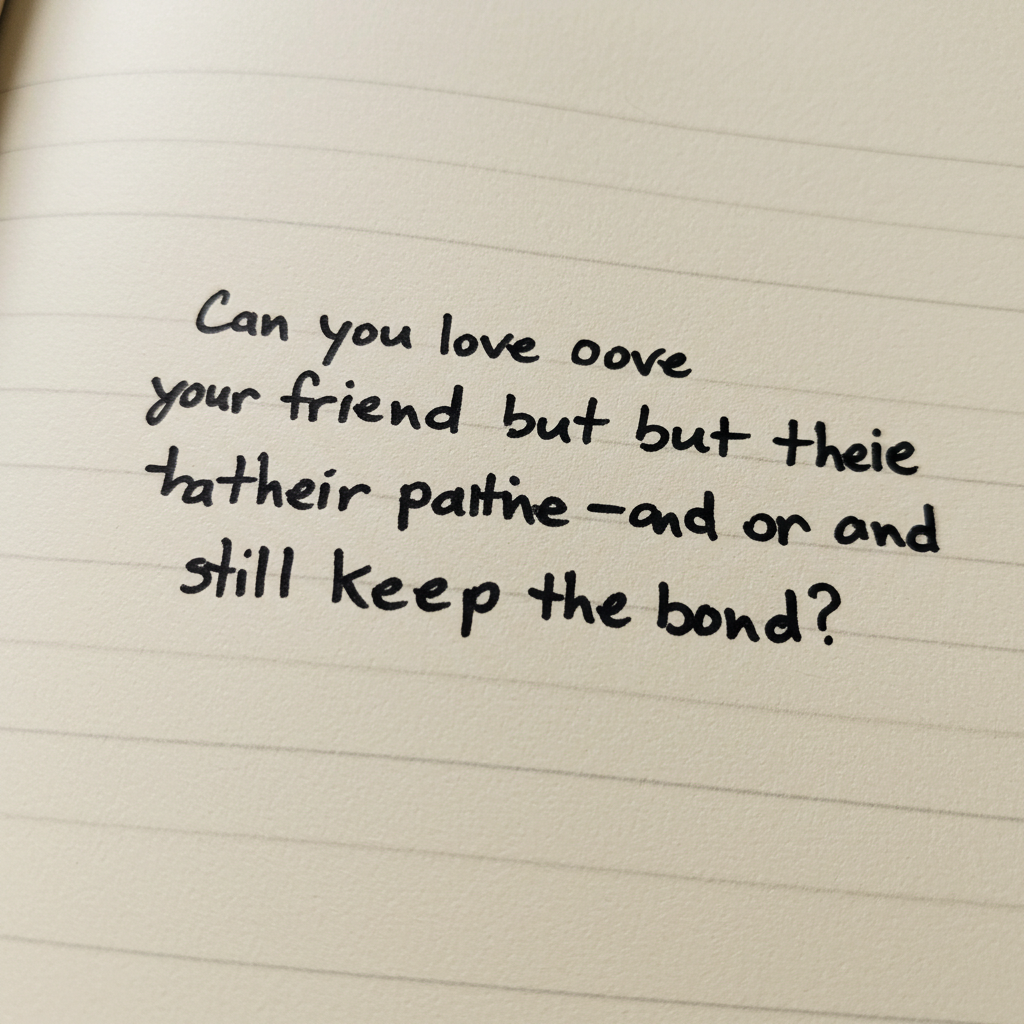 Can you love oove
your friend but but theie
tatheir paltine —and or and
still keep the bond?